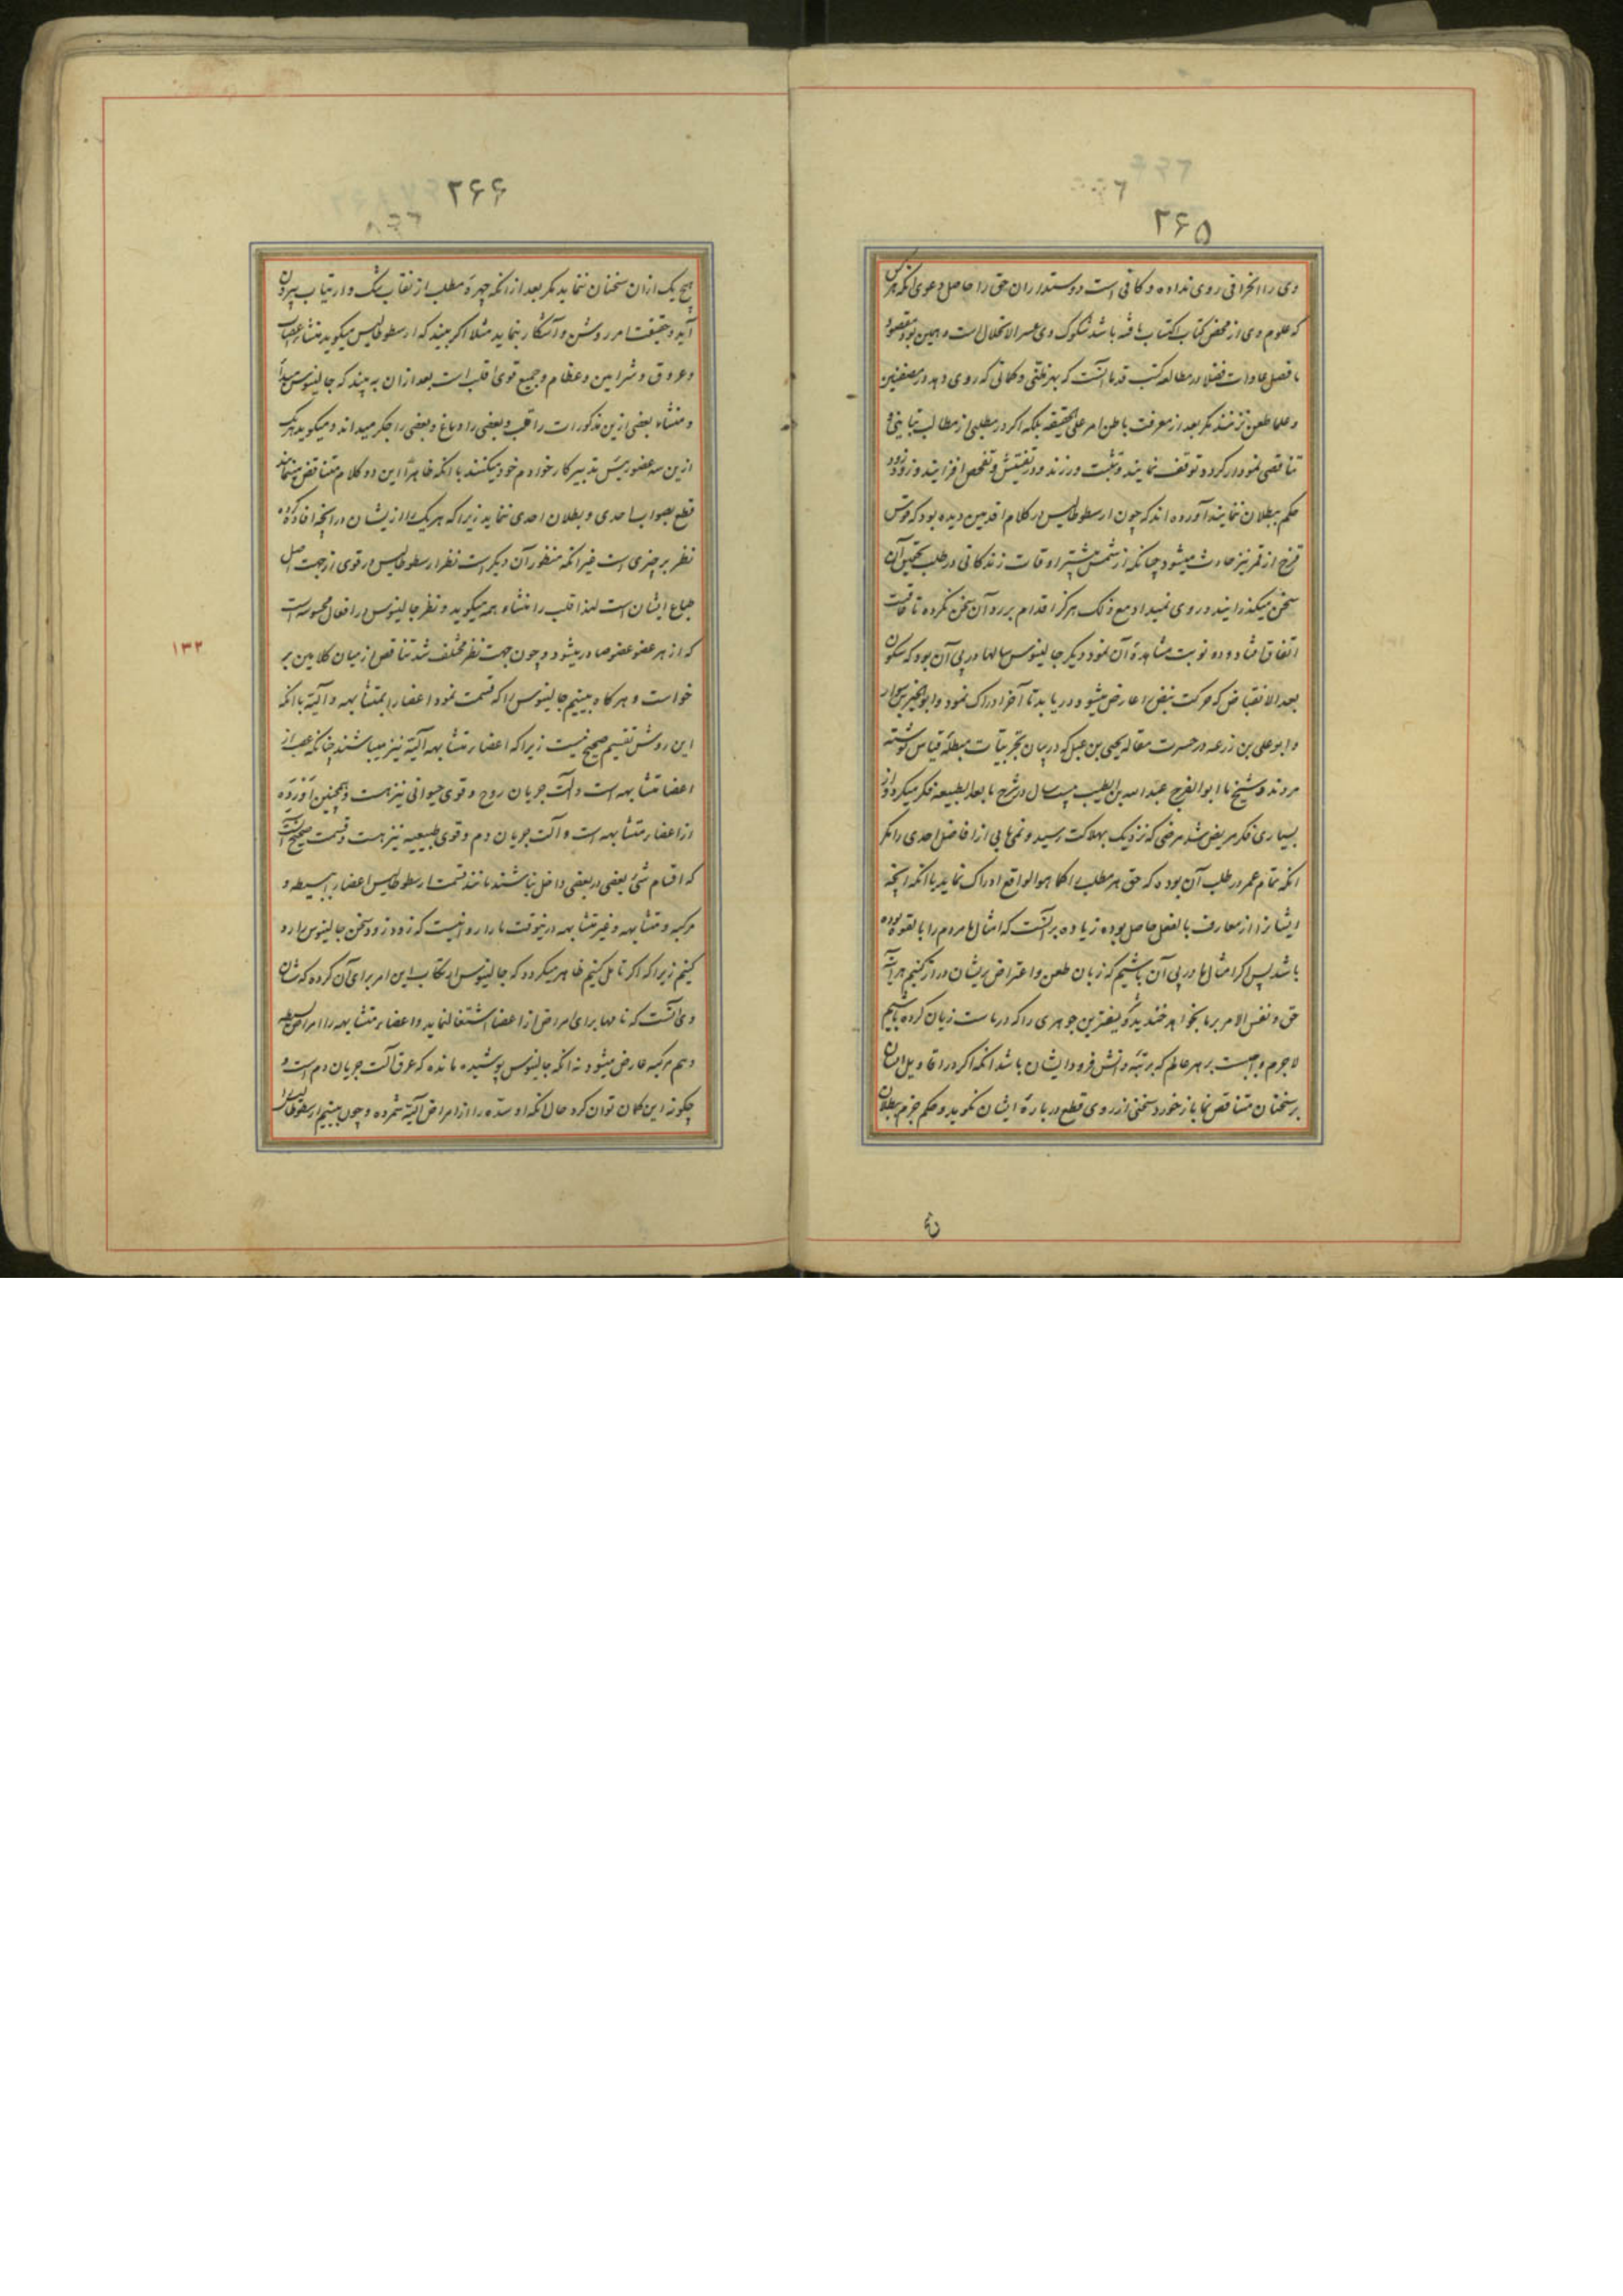 ۲۶۵
وی را انحرافی روی نداده و کافی است دوستداران حق را حاصل دعوی آنکه هر کس
که علوم وی از محض کتاب اکتساب یافته باشد شکوک وی عسر الانحلال است و همین بود مقصود
ما فصل عادات فضلا در مطالعه کتب قدما آنست که بهر ظنی و کمانی که روی دهد در مصنفین
و علما طعن نزنند مکر بعد از معرفت باطن امر علی الحقیقه بلکه اکر در مطلبی از مطالب تباینی و
تناقضی نمودار کردد توقف نمایند و تثبت ورزند و در تفتیش و تفحص افزایند و زود زود
حکم ببطلان ننمایند آورده اند که چون ارسطوطالیس در کلام اقدمین دیده بود که قوس
قزح از قمر نیز حادث میشود چنانکه از شمس بیشتر اوقات زندکانی در طلب تحقیق آن
سخن میکذرانید و روی نمیداد مع ذلک هرکز اقدام بر رد آن سخن نکرده تا عاقبت
اتفاق افتاد و دو نوبت مشاهدهٔ آن نمود و دیکر جالینوس سالها در پی آن بود که سکون
بعد الانقباض که حرکت نبض را عارض میشود دریابد تا آخر ادراک نمود و ابو الخیر بن سوار
و ابو علی بن زرعه در حسرت مقاله یحیی بن عدی که در بیان تجربیات مبطله قیاس نوشته
مردند و شیخ ما ابو الفرج عبد الله بن الطیب بیست سال در شرح ما بعد الطبیعه فکر میکرد و از
بسیاری فکر مریض شد مرضی که نزدیک بهلاکت رسید و نمی یابی از افاضل احدی را مکر
آنکه تمام عمر در طلب آن بوده که حق هر مطلب را کما هو الواقع ادراک نماید با آنکه آنچه
ایشانرا از معارف بالفعل حاصل بوده زیاده بر آنست که امثال ما مردم را بالقوه بوده
باشد پس اکر امثال ما در پی آن باشیم که زبان طعن و اعتراض بر ایشان دراز کنیم هر آینه
حق و نفس الامر بر ما بخواهد خندید کو نفیس‌ترین جوهری را که در ماست زیان کرده باشیم
لاجرم واجبست بر هر عالم که برتبه دانش فرود ایشان باشد آنکه اکر در اقاویل ایشان
بر سخنان متناقض نما باز خورد سخنی از روی قطع در بارهٔ ایشان نکوید و حکم جزم ببطلان
۲۶۶
هیچ یک از ان سخنان ننماید مکر بعد از آنکه چهرهٔ مطلب از نقاب شک و ارتیاب بیرون
آید و حقیقت امر روشن و آشکار بنماید مثلا اکر بیند که ارسطوطالیس میکوید منشاء اعصاب
و عروق و شرایین و عظام و جمیع قوی قلب است بعد از ان به بیند که جالینوس مبدأ
و منشاء بعضی ازین مذکورات را قلب و بعضی را دماغ و بعضی را جکر میداند و میکوید هر یک
ازین سه عضو رییس تدبیر کار خود ام خود میکنند با آنکه ظاهرا این دو کلام متناقض مینماید
قطع بصواب احدی و بطلان احدی ننماید زیرا که هر یک را از ایشان در آنچه افاده کرده
نظر بر چیزی است غیر آنکه منظور آن دیکر است نظر ارسطوطالیس در قوی از جهت اصل
طباع ایشان است لهذا قلب را منشاء همه میکوید و نظر جالینوس در افعال محسوسه است
که از هر عضو عضو صادر میشود و چون جهت نظر مختلف شد تناقض از میان کلامین بر
خواست و هر کاه ببینیم جالینوس را که قسمت نمود اعضا را بمتشابهه و آلیه با آنکه
این روش تقسیم صحیح نیست زیرا که اعضاء متشابهه آلیه نیز میباشند چنانکه عصب از
اعضا متشابهه است و آلت جریان روح و قوی حیوانی نیز هست و همچنین آورده
از اعضاء متشابهه است و آلت جریان دم و قوی طبیعیه نیز هست و قسمت صحیح آنست
که اقسام شیٔ بعضی در بعضی داخل نباشند مانند قسمت ارسطوطالیس اعضا را ببسیطه و
مرکبه و متشابهه و غیر متشابهه در اینوقت ما را روا نیست که زود زود سخن جالینوس را رد
کنیم زیرا که اکر تامل کنیم ظاهر میکردد که جالینوس ارتکاب این امر برای آن کرده که شان
وی آنست که تا مهیا برای امراض از اعضا اشتغال نماید و اعضاء متشابهه را امراض بسیطه
و هم مرکبه عارض میشود نه آنکه جالینوس پوشیده مانده که عرق آلت جریان دم است و
چکونه این کمان توان کرد حال آنکه او سده را از امراض آلیه شمرده و چون ببینیم ارسطوطالیس را
۱۳۲